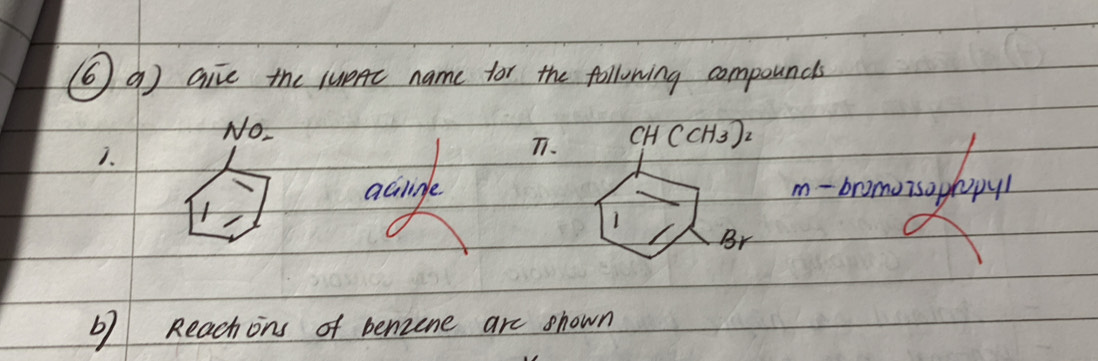 ⑥ a) Give the IUPAC name for the following compounds
NO₂ CH(CH₃)₂
i. II.
aciline m-bromoisopropyl
Br
b) Reactions of benzene are shown